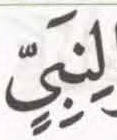 لِنَبِيٍّ